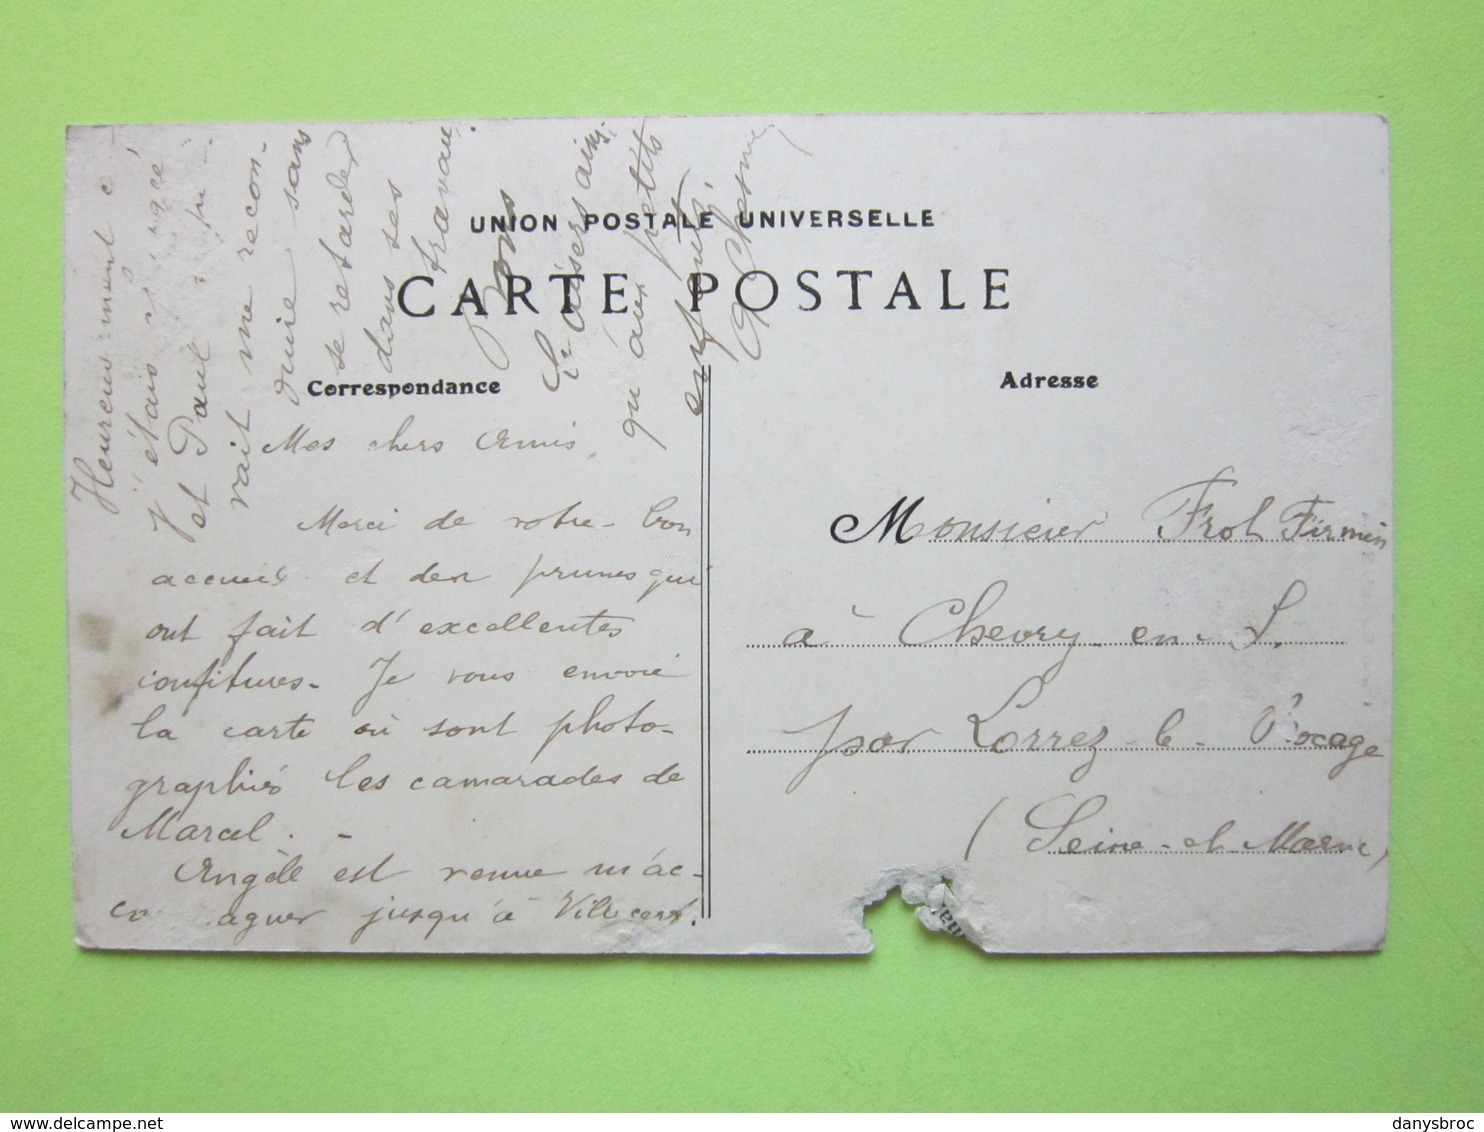 UNION POSTALE UNIVERSELLE
CARTE POSTALE
Correspondance
Adresse
Mes chers Amis,
Merci de votre bon
accueil et des prunes qui
ont fait d'excellentes
confitures. Je vous envoie
la carte où sont photo-
graphiés les camarades de
Marcel. -
Angèle est venue m'ac-
co agner jusqu'à
Heureusement
j'étais
et Paul
vait me recon-
duire sans
se retarder
dans ses
travaux.
Bons
baisers ainsi
qu'aux petits
enfants.
Monsieur Frot Firmin
à Chevry-en-S.
par Lorrez-le-Bocage
(Seine-et-Marne)
delcampe.net
danysbroc